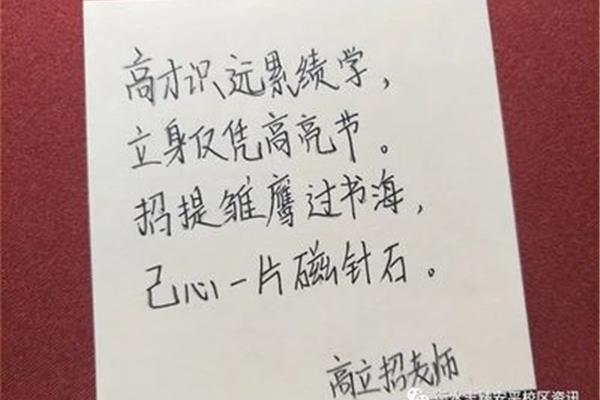 高才识远累绩学，
立身仅凭高亮节。
招提雏鹰过书海，
己心一片磁针石。
高立招老师